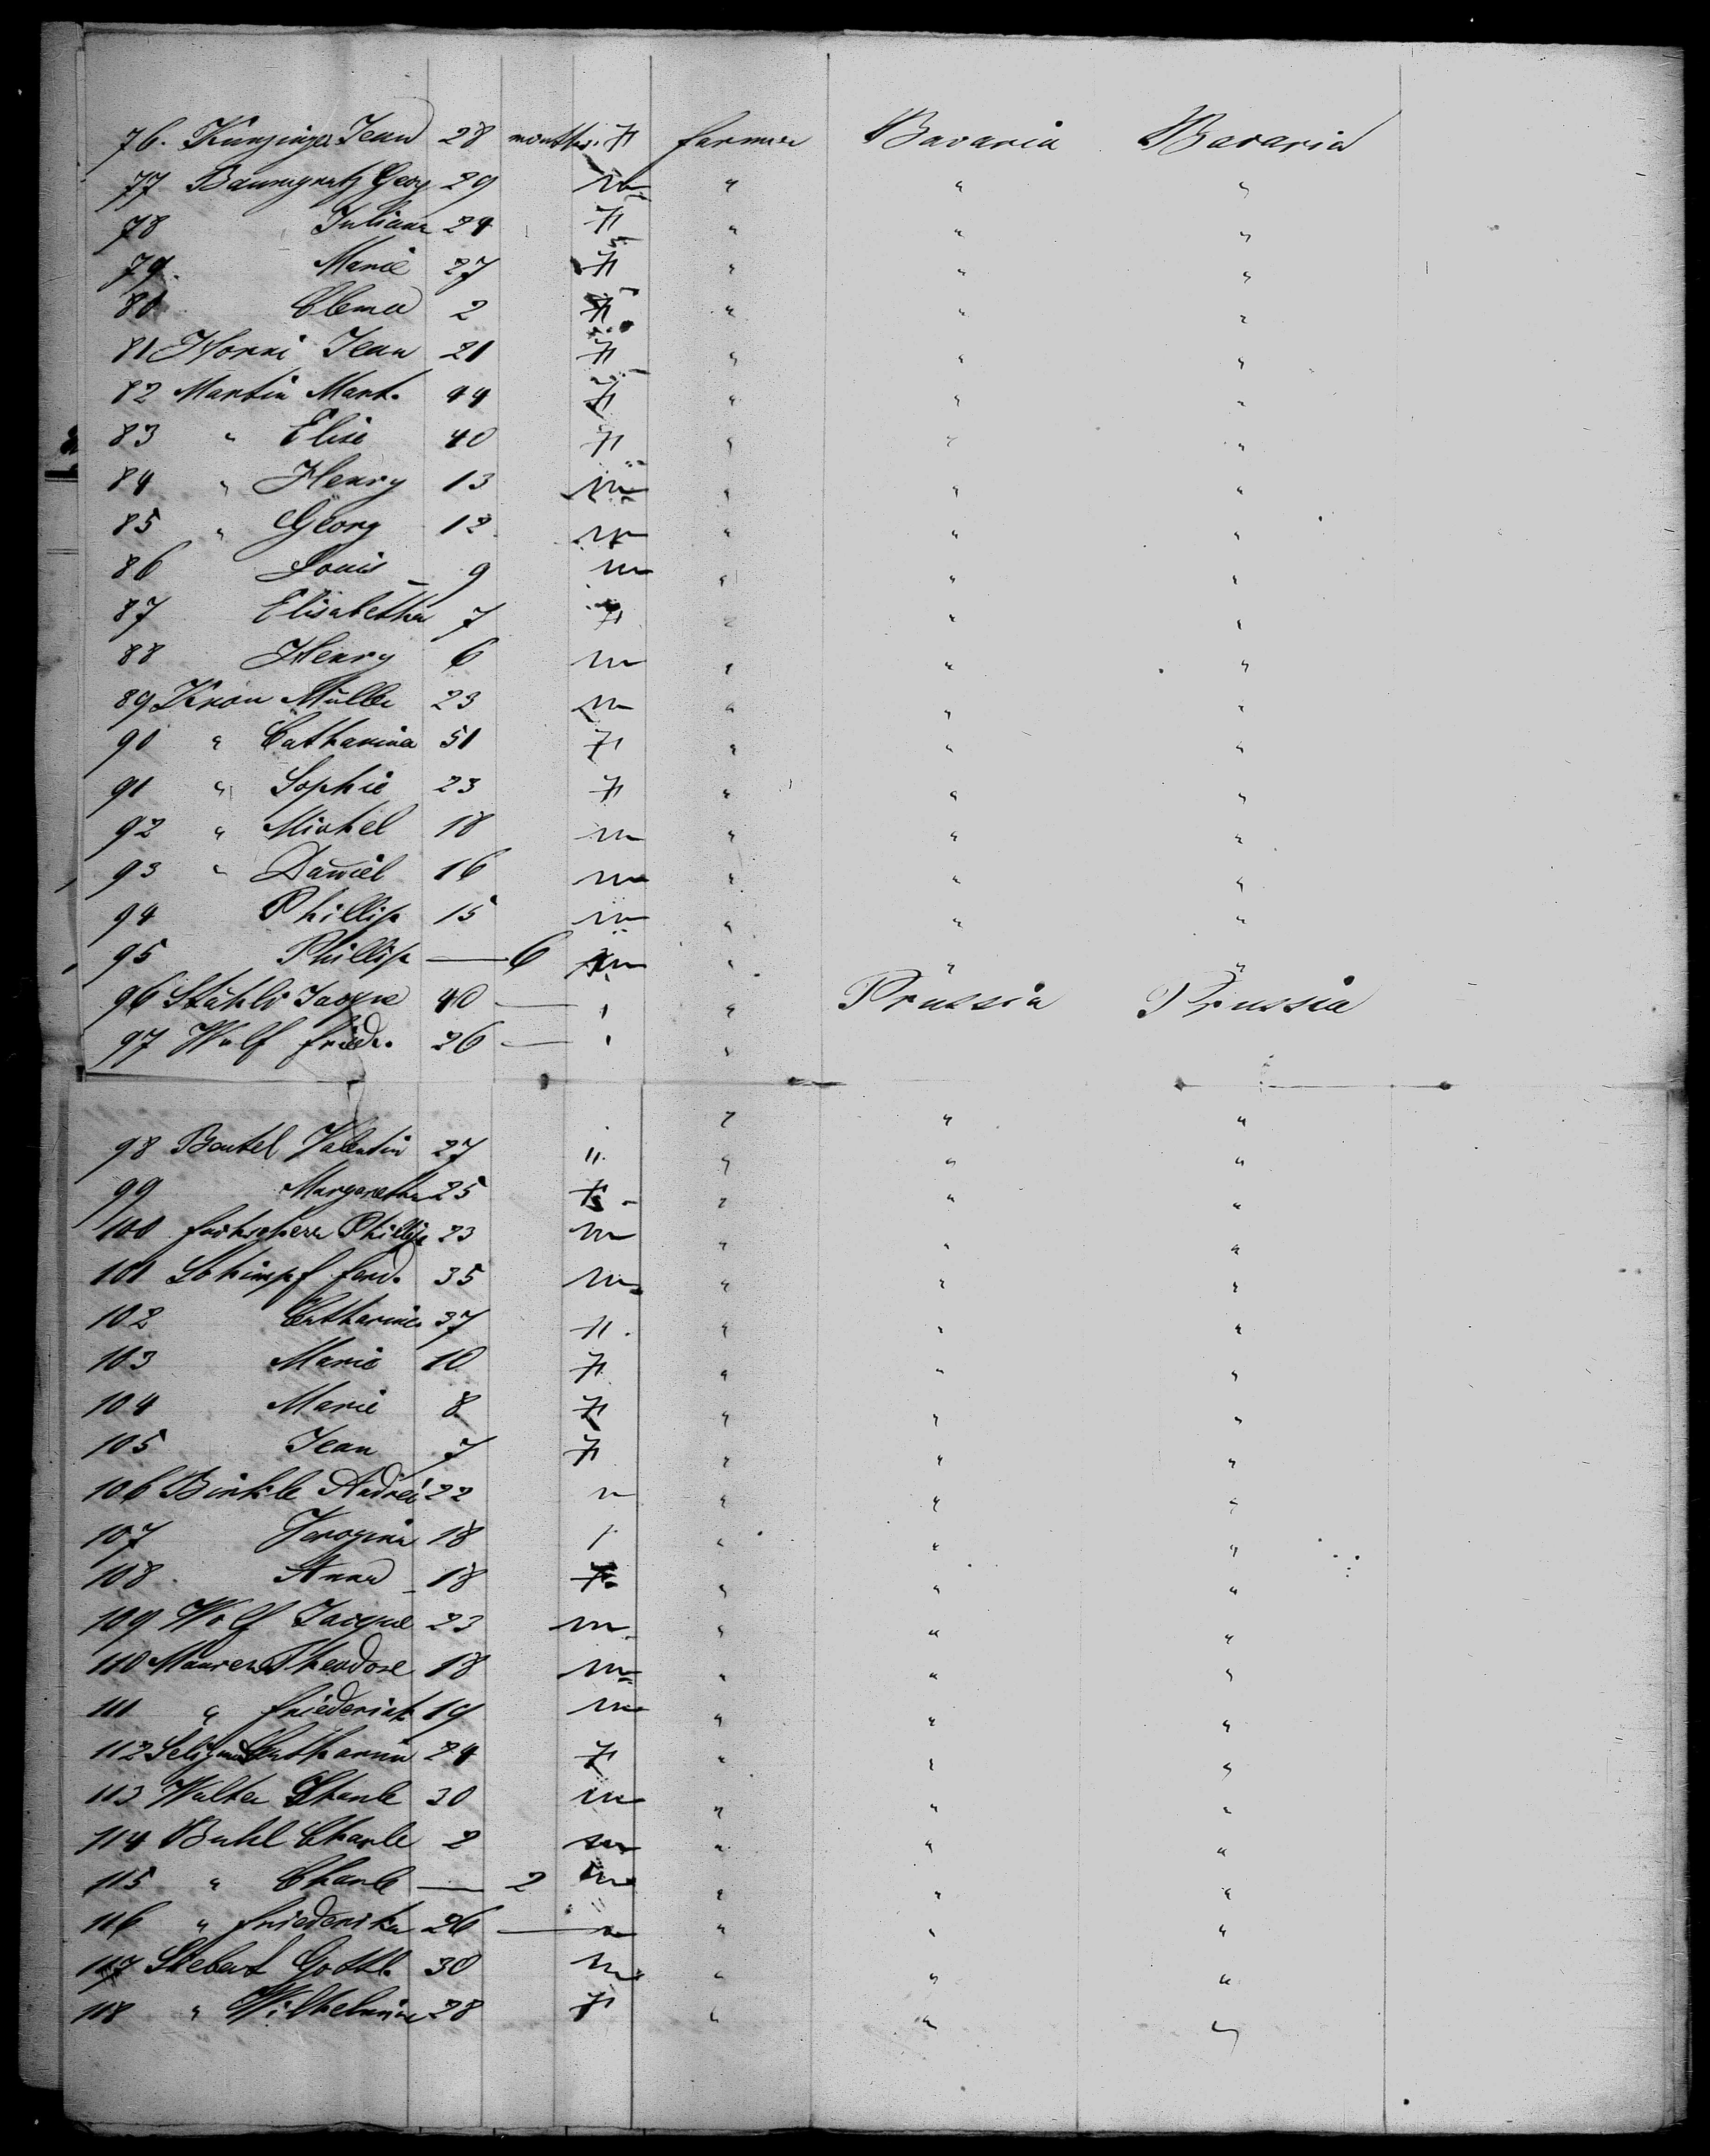 76. Kunzinger Jean 28 months. F farmer Bavaria Bavaria
77 Baumgratz Georg 29 m " " "
78 Juliana 24 F " " "
79. Marie 27 F " " "
80 Clema 2 F " " "
81 Horni Jean 21 F " " "
82 Martin Mart. 44 F " " "
83 " Elise 40 F " " "
84 " Henry 13 m " " "
85 " Georg 12 m " " "
86 Louis 9 m " " "
87 Elisabetha 7 F " " "
88 Henry 6 m " " "
89 Kron Müller 23 m " " "
90 " Catharina 51 F " " "
91 " Sophie 23 F " " "
92 " Michel 18 m " " "
93 " Daniel 16 m " " "
94 Phillip 15 m " " "
95 Phillip — 6 m " " "
96 Stähli Jaque 40 — " " Prussia Prussia
97 Wolf fried. 26 — " "
" " "
98 Beutel Valentin 27 " " " "
99 Margaretha 25 F " " "
100 Phillip 23 m " " "
101 Schimpf ferd. 35 m " " "
102 Catharine 37 " " " "
103 Marie 10 F " " "
104 Marie 8 F " " "
105 Jean 7 F " " "
106 Binkle Andréi 22 m " " "
107 18 " " "
108. Anna 18 F " " "
109 Wolf Jacque 23 m " " "
110 Maurer Theodore 18 m " " "
111 " friederich 19 m " " "
112 Catharina 24 F " " "
113 Walter Charle 30 m " " "
114 Buhl Charle 2 m " " "
115 " Charle — 2 m " " "
116 " friederika 26 — " " "
117 Siebert Gottl. 30 m " " "
118 " Wilhelmine 28 F " " "